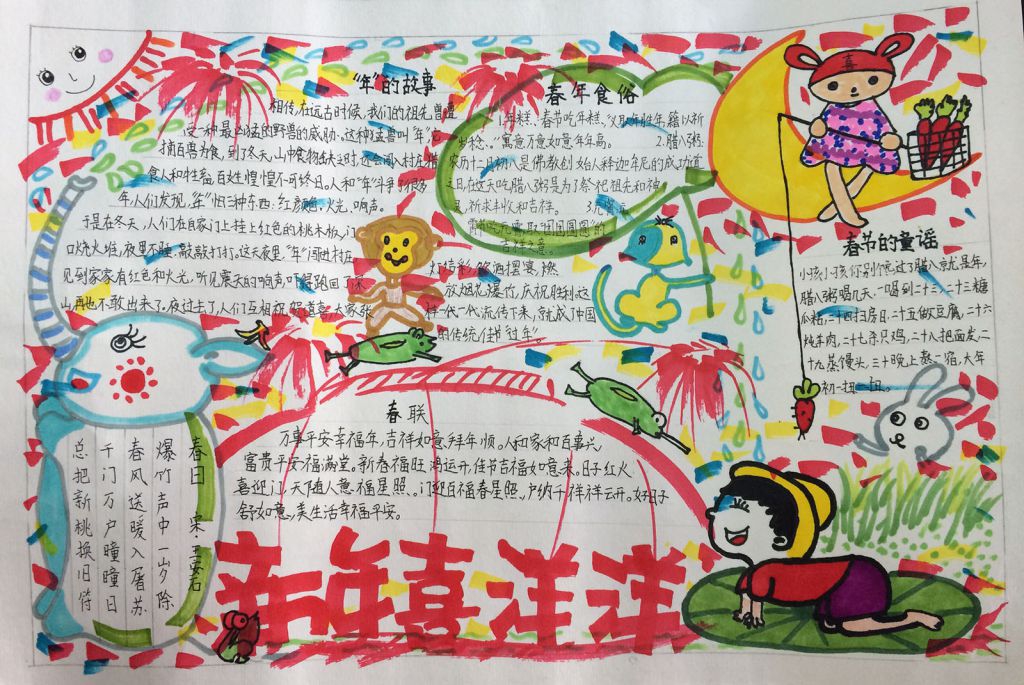 "年"的故事
相传,在远古时候,我们的祖先曾遭
受一种最凶猛的野兽的威胁.这种猛兽叫"年"它
捕百兽为食,到了冬天,山中食物缺乏时,还会闯入村庄,猎
食人和牲畜,百姓惶惶不可终日。人和"年"斗争了很多
年,人们发现,"年"怕三种东西:红颜色、火光、响声。
于是在冬天,人们在自家门上挂上红色的桃木板,门
口烧火堆,夜里不睡,敲敲打打。这天夜里,"年"闯进村庄
见到家家有红色和火光,听见震天的响声,吓得跑回了深
山,再也不敢出来了。夜过去了,人们互相祝贺道喜,大家张
灯结彩,饮酒摆宴,燃
放烟花爆竹,庆祝胜利这
样一代一代流传下来,就成了中国
的传统佳节"过年"。
春年食俗
1.年糕:春节吃年糕,"义取年胜年,籍以祈
岁稔。"寓意万意如意年年高。 2.腊八粥:
农历十二月初八是佛教创始人释迦牟尼的成功道
之日,在这天吃腊八粥是为了祭祀祖先和神
灵,祈求丰收和吉祥。 3.
春节的童谣
小孩小孩你别个馋,过了腊八就是年,
腊八粥喝几天,一喝到二十三,二十三糖
瓜粘,二十四扫房日,二十五做豆腐,二十六
炖羊肉,二十七杀只鸡,二十八把面发,二
十九蒸馒头,三十晚上熬一宿,大年
初一扭一扭。
春联
万事平安幸福年,吉祥如意拜年顺。人和家和百事兴,
富贵平安福满堂。新春福旺鸿运开,佳节吉福如意来。日子红火
喜迎门,天随人意福星照。门迎百福春星照,户纳千祥祥云开。好日子
舒如意,美生活幸福平安。
春日 宋·王安石
爆竹声中一岁除
春风送暖入屠苏
千门万户瞳瞳日
总把新桃换旧符
新年喜洋洋